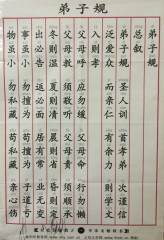 弟子规
弟子规
总叙
弟子规 圣人训 首孝弟 次谨信
泛爱众 而亲仁 有余力 则学文
入则孝
父母呼 应勿缓 父母命 行勿懒
父母教 须敬听 父母责 须顺承
冬则温 夏则凊 晨则省 昏则定
出必告 反必面 居有常 业无变
事虽小 勿擅为 苟擅为 子道亏
物虽小 勿私藏 苟私藏 亲心伤